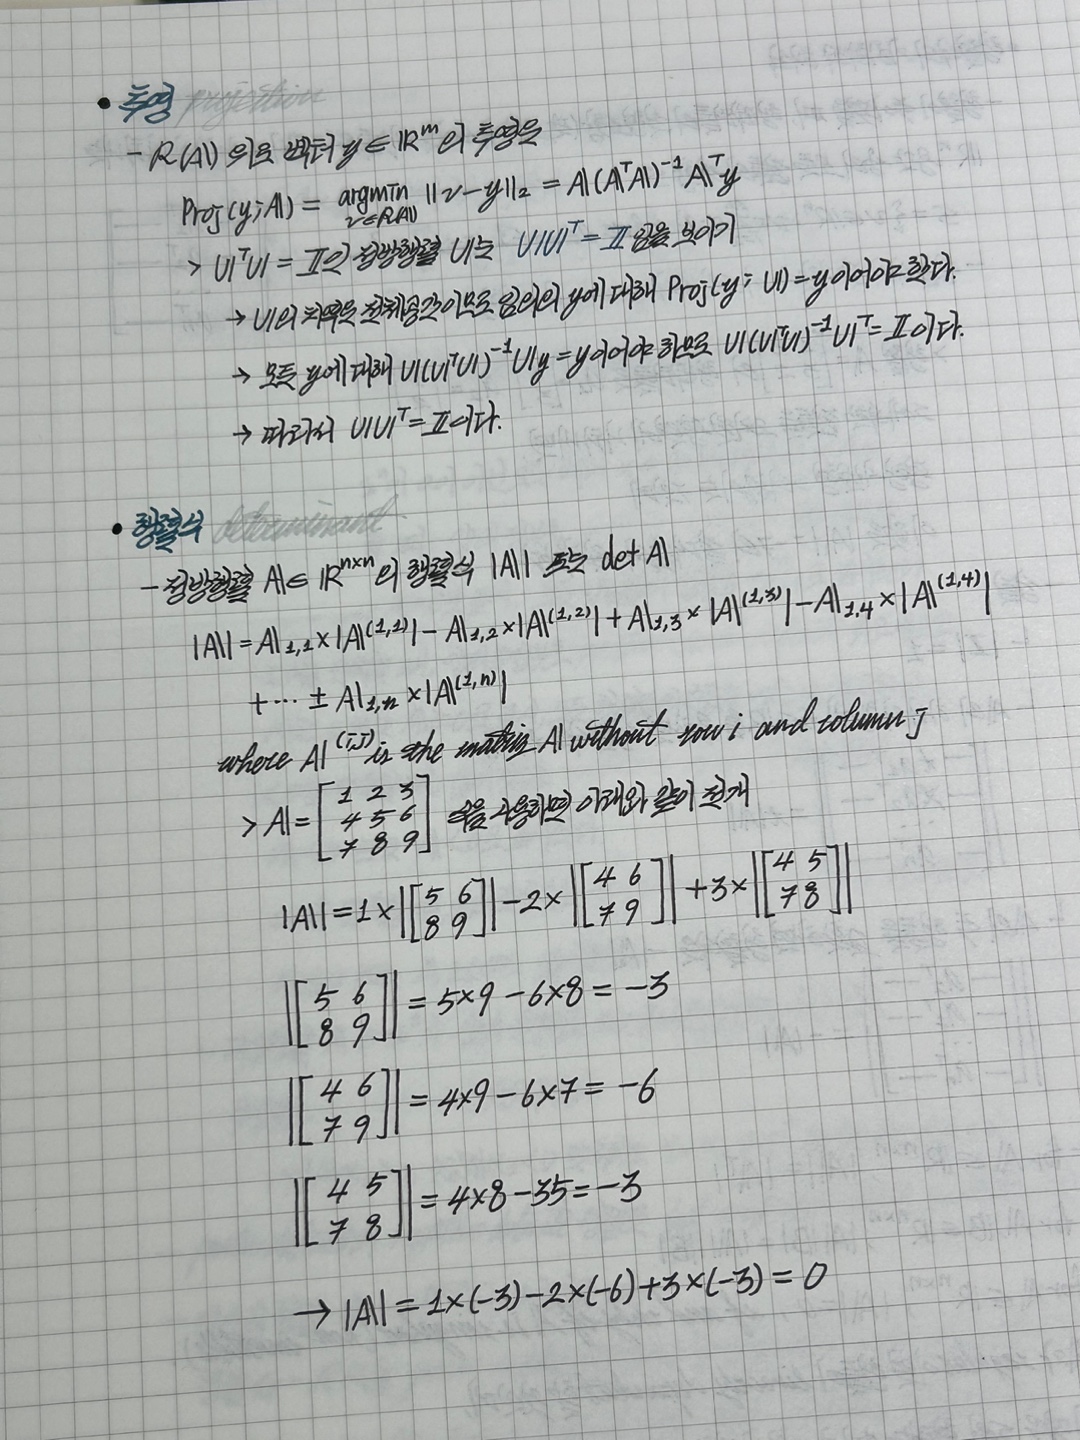 • 투영 projection
- R(A) 위로 벡터 y ∈ ℝᵐ의 투영은
Proj(y; A) = argmin_{v∈R(A)} ||v - y||₂ = A(AᵀA)⁻¹Aᵀy
> UᵀU = I인 정방행렬 U는 UUᵀ = I 임을 보이기
→ U의 치역은 전체공간이므로 임의의 y에 대해 Proj(y; U) = y이어야 한다.
→ 모든 y에 대해 U(UᵀU)⁻¹Uy = y이어야 하므로 U(UᵀU)⁻¹Uᵀ = I이다.
→ 따라서 UUᵀ = I이다.
• 행렬식 determinant
- 정방행렬 A ∈ ℝⁿˣⁿ의 행렬식 |A| 또는 det A
|A| = A₁,₁ × |A^(1,1)| - A₁,₂ × |A^(1,2)| + A₁,₃ × |A^(1,3)| - A₁,₄ × |A^(1,4)|
+ ··· ± A₁,ₙ × |A^(1,n)|
where A^(i,j) is the matrix A without row i and column j
> A = [1 2 3; 4 5 6; 7 8 9] 식을 사용하면 아래와 같이 전개
|A| = 1 × |[5 6; 8 9]| - 2 × |[4 6; 7 9]| + 3 × |[4 5; 7 8]|
|[5 6; 8 9]| = 5×9 - 6×8 = -3
|[4 6; 7 9]| = 4×9 - 6×7 = -6
|[4 5; 7 8]| = 4×8 - 35 = -3
→ |A| = 1×(-3) - 2×(-6) + 3×(-3) = 0